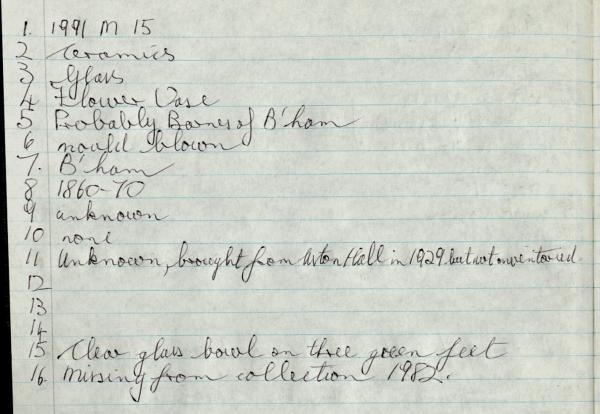 1. 1991 M 15
2 Ceramics
3 Glass
4 Flower Vase
5 Probably Barnes of B'ham
6 mould blown
7. B'ham
8 1860-70
9 unknown
10 none
11 Unknown, brought from Aston Hall in 1929 but not inventoried.
12
13
14
15 Clear glass bowl on three green feet
16. Missing from collection 1982.